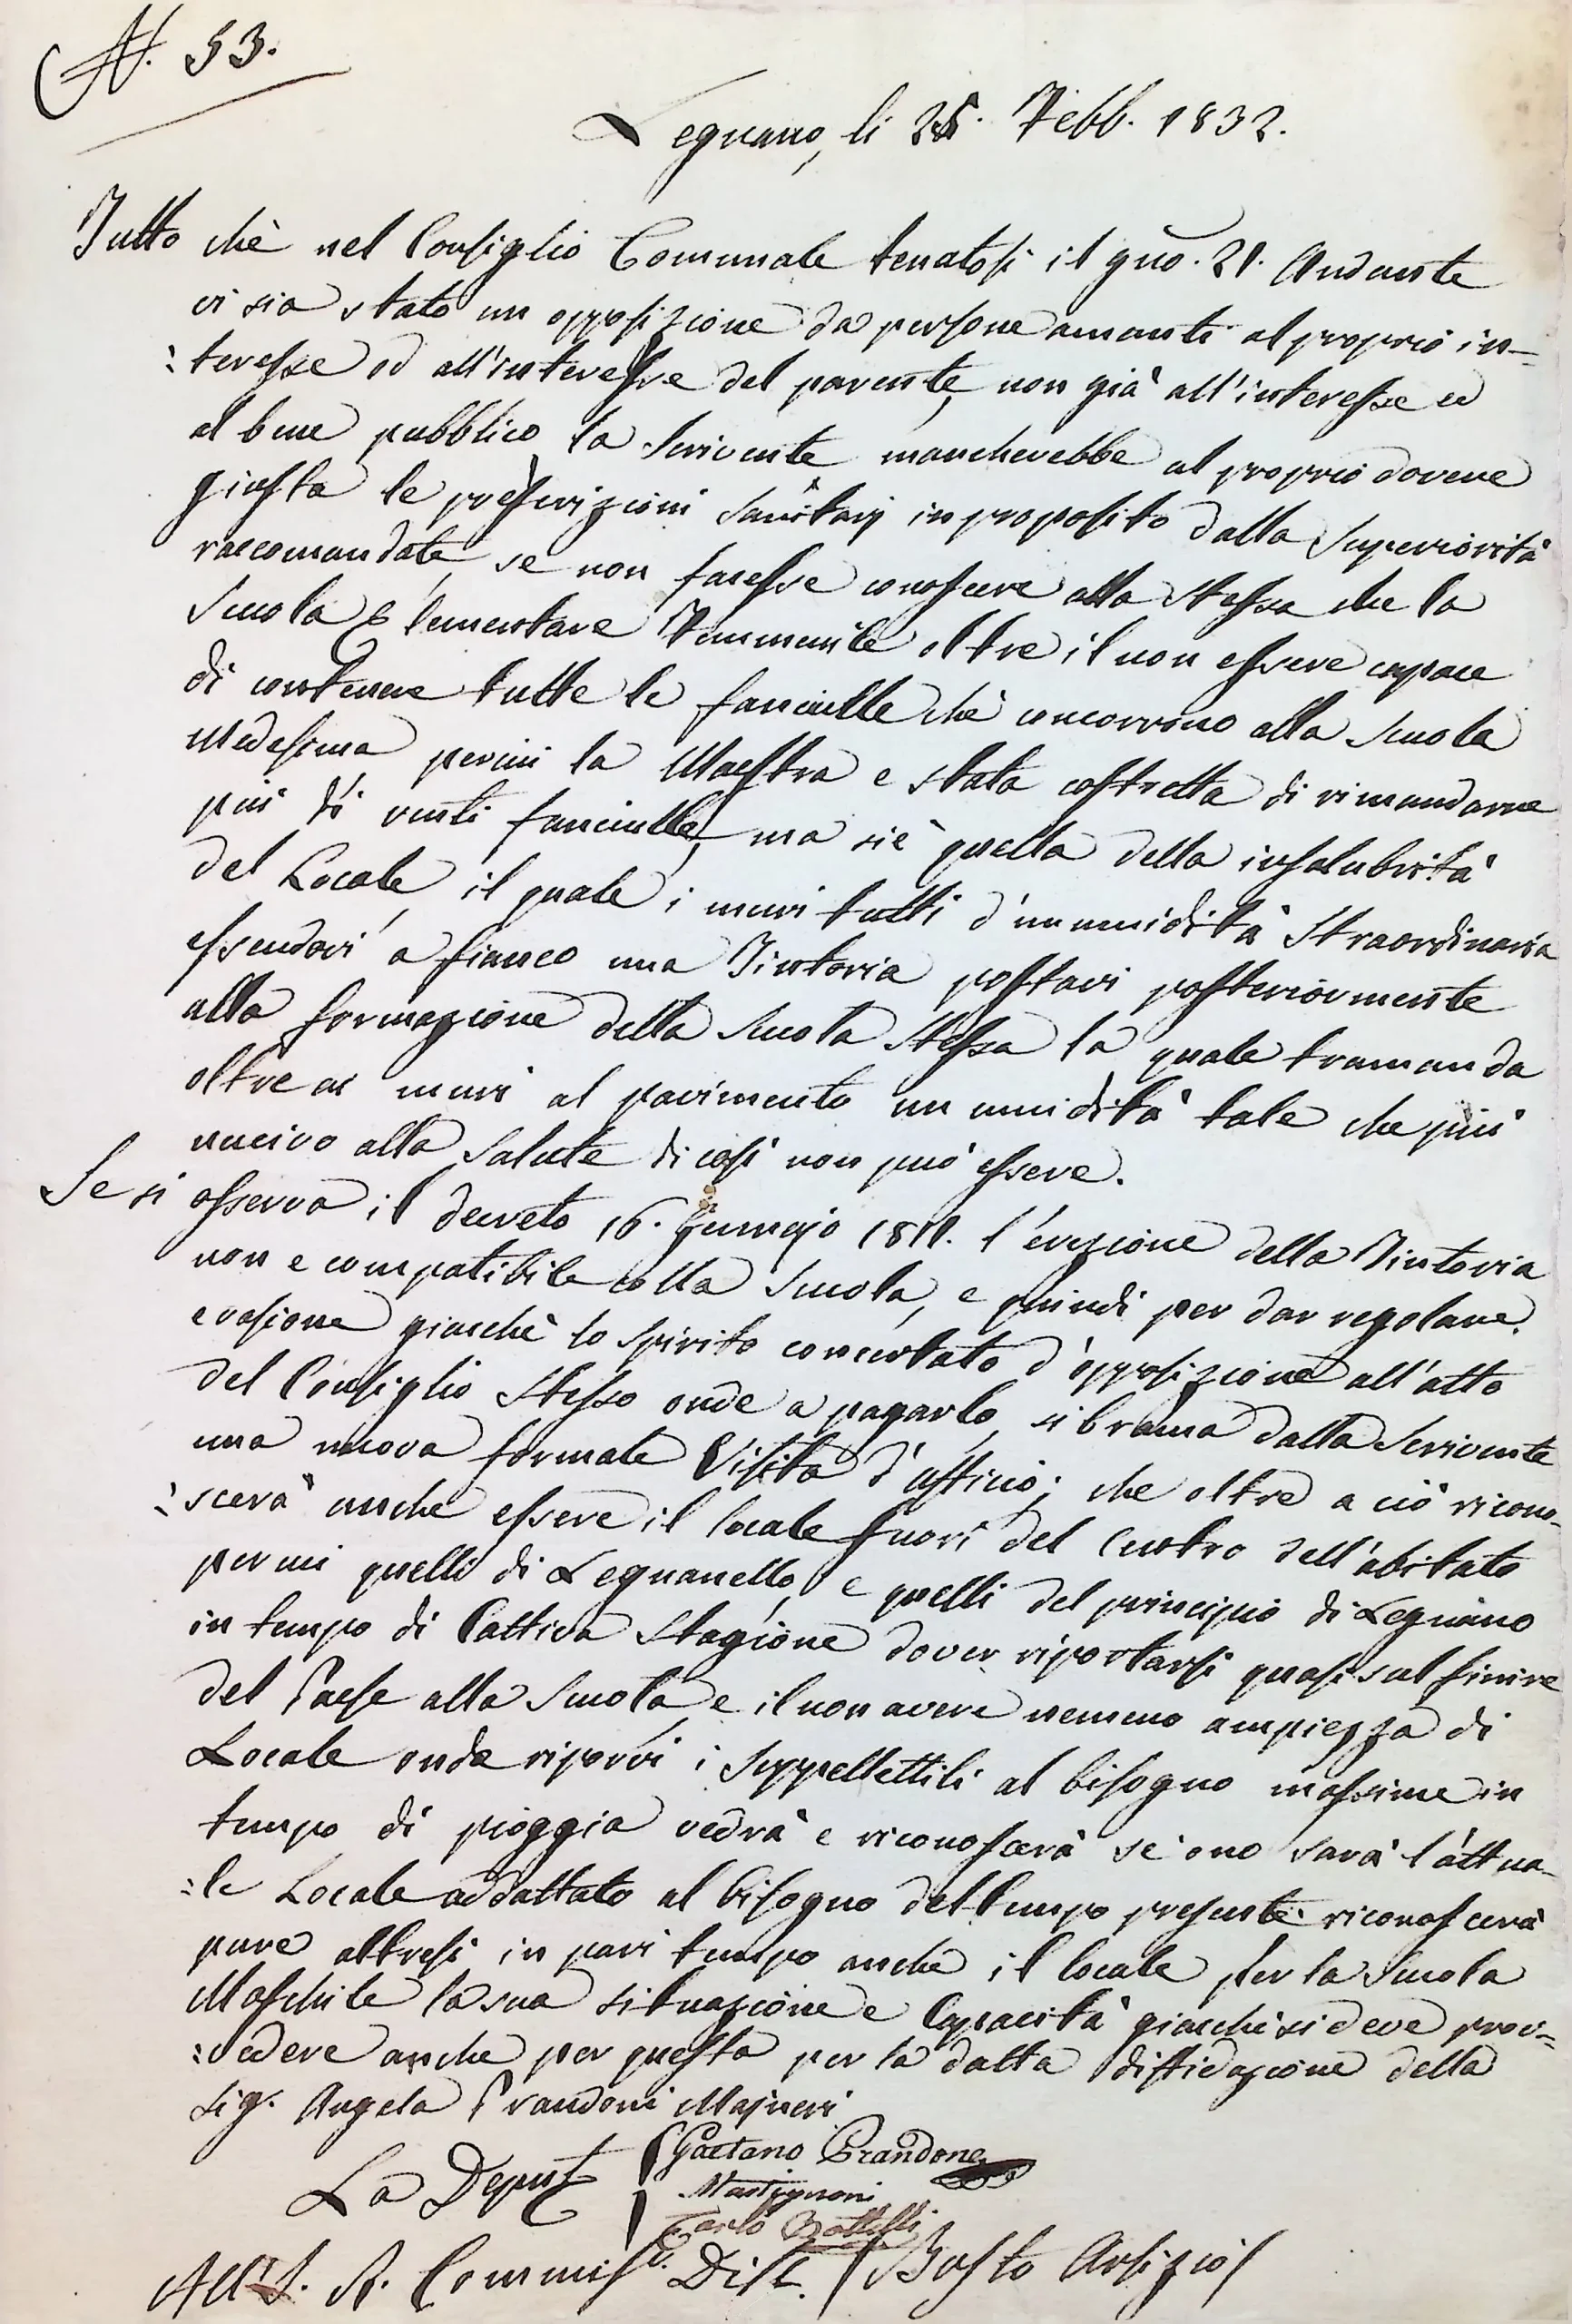 N. 53.
Legnano, li 25. Febb. 1832.
Tutto chè nel Consiglio Comunale tenutosi il gno. 21. Andante
vi sia stato un opposizione da persone amanti al proprio in-
:teresse od all'interesse del parente, non già all'interesse ed
al bene pubblico la Scrivente mancherebbe al proprio dovere
giusta le prescrizioni Sanitarj in proposito dalla Superiorità
raccomandate, se non facesse conoscere alla Stessa che la
Scuola Elementare Femminile oltre il non essere capace
di contenere tutte le fanciulle chè concorrino alla Scuola
medesima percui la Maestra e stata costretta di rimandarne
più di venti fanciulle, ma si è quella della insalubrità
del Locale, il quale i muri tutti d'umidità Straordinaria
essendovi a fianco una Tintoria postavi posteriormente
alla formazione della Scuola Stessa la quale tramanda
oltre ai muri al pavimento un umidità tale che più
nucivo alla Salute di così non può essere.
Se si osserva il decreto 16. Gennajo 1811. l'erezione della Tintoria
non e compatibile colla Scuola, e quindi per dar regolare
evasione giacchè lo Spirito concertato d'opposizione all'atto
del Consiglio Stesso onde a pagarlo, si brama dalla Scrivente
una nuova formale Visita d'ufficio; che oltre a ciò ricono-
:scerà anche essere il locale fuori del Centro dell'abitato
per cui quelli di Legnanello, e quelli del principio di Legnano
in tempo di Cattiva Stagione dover riportarsi quasi sul finire
del Paese alla Scuola, e il non avere nemeno ampiezza di
Locale onde riporvi i Suppellettili al bisogno massime in
tempo di pioggia vedrà e riconoscerà se ono sarà l'attua-
:le Locale addattato al bisogno del tempo presente riconoscerà
pure altresì in pari tempo anche il locale per la Scuola
Maschile la sua situazione e Capacità giacchè si deve prov-
:vedere anche per questa per la datta diffidazione della
Sig. Angela Prandoni Majneri
La Deput
Gaetano Prandone
Martignoni
Carlo Bottelli
All' I. R. Commiss. Dist. Busto Arsizio